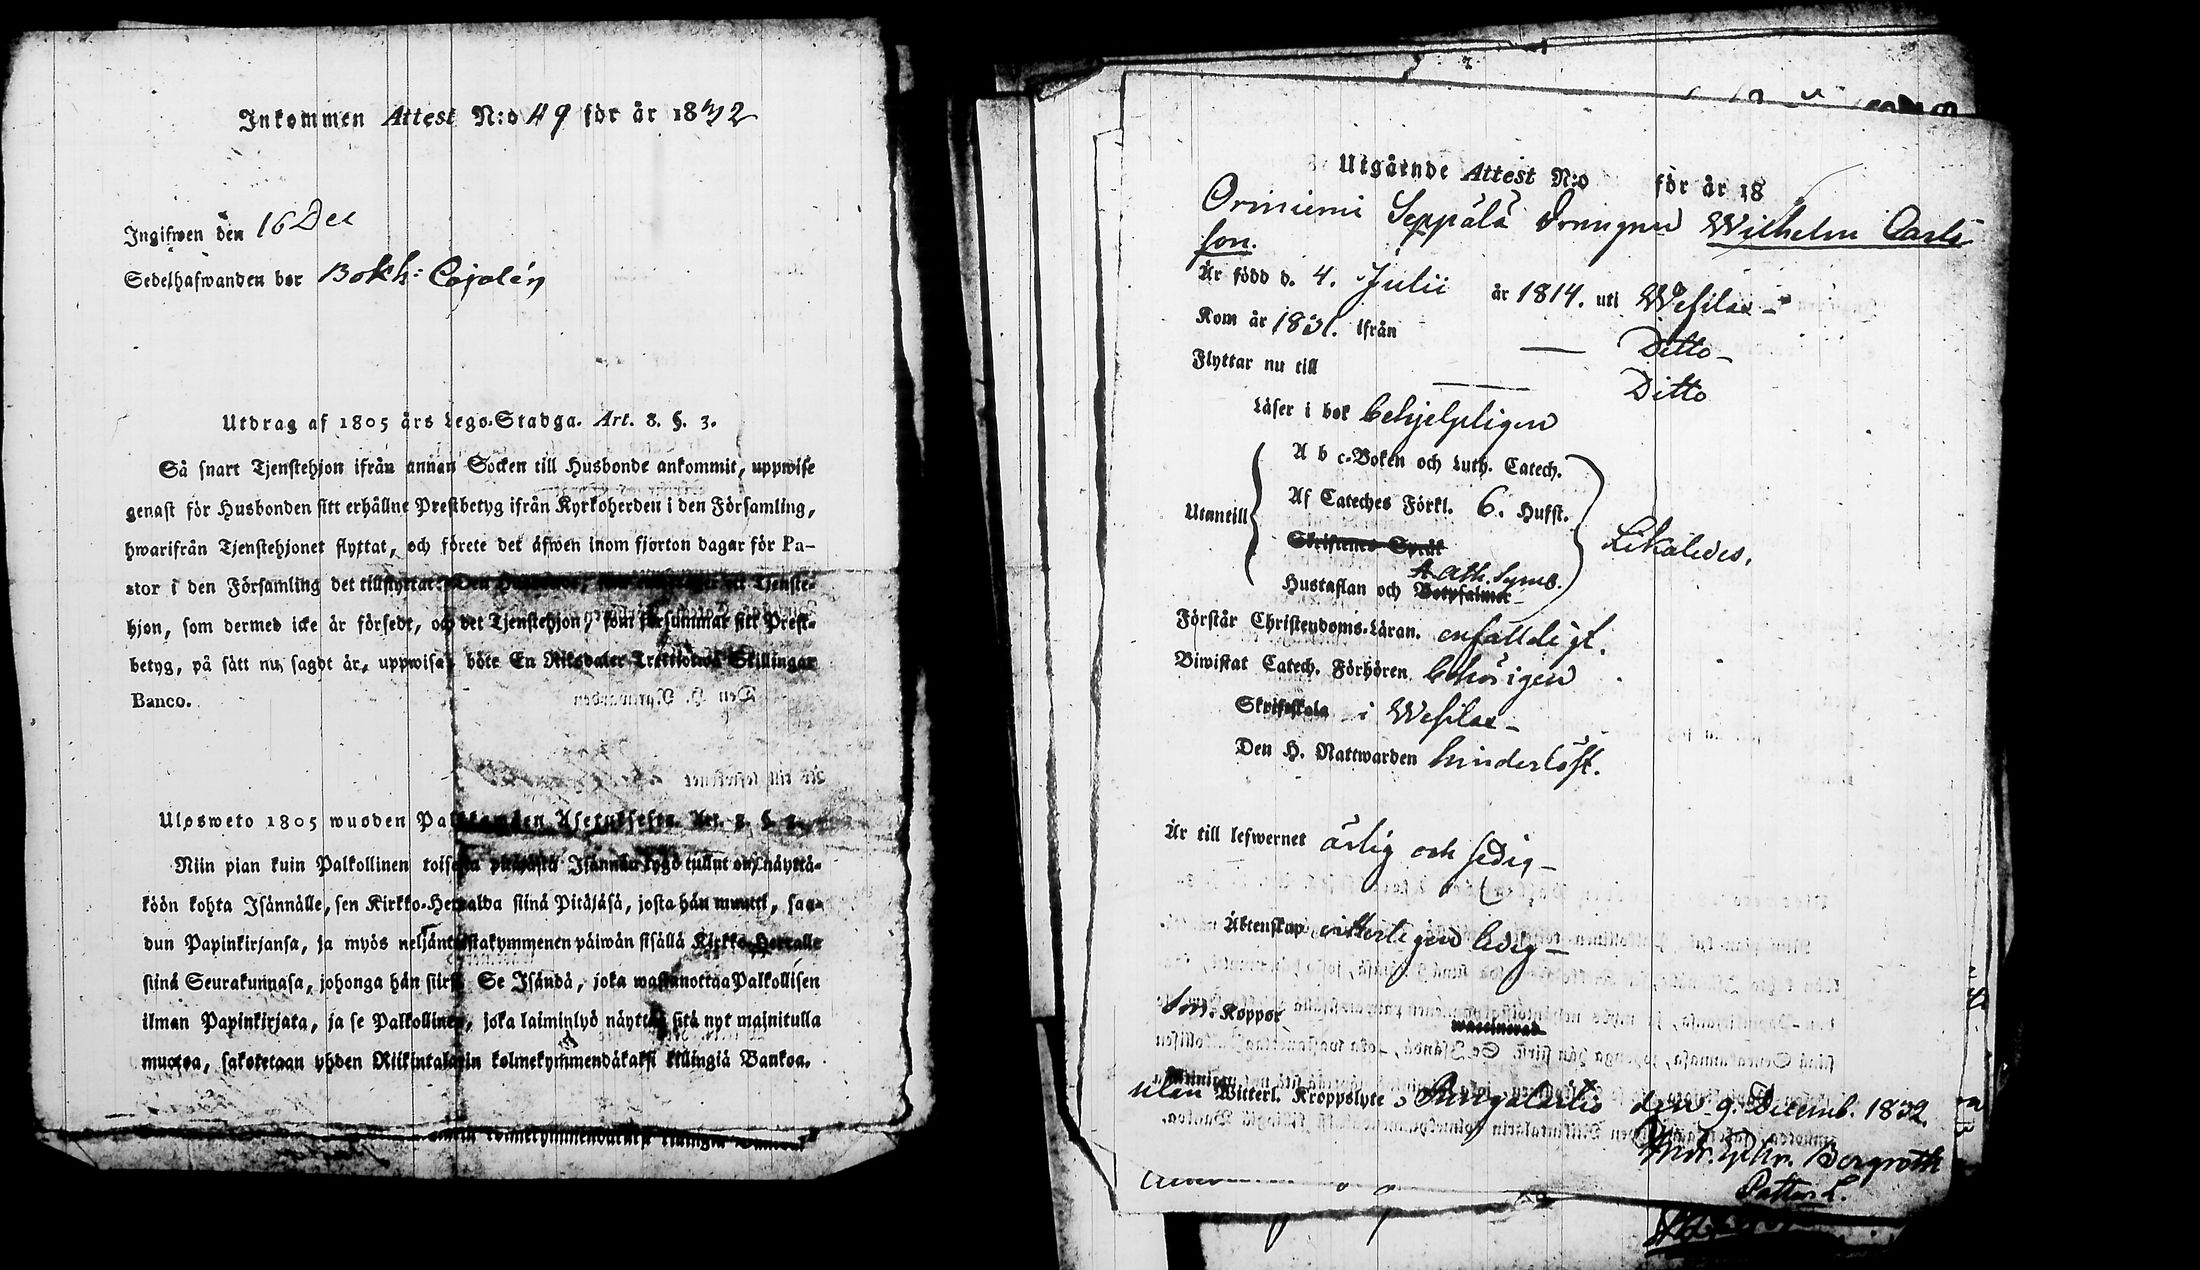 Inkommen Attest N:o 49 för år 1832
Ingifwen den 16 Dec
Sedelhafwanden bor Bokh: Cajalén
Utdrag af 1805 års Lego-Stadga. Art. 8. §. 3.
Så snart Tjenstehjon ifrån annan Socken till Husbonde ankommit, uppwise
genast för Husbonden sitt erhållne Prestbetyg ifrån Kyrkoherden i den Församling,
hwarifrån Tjenstehjonet flyttat, och förete det äfwen inom fjorton dagar för Pa-
stor i den Församling det tillflyttat. Den Tjenste-
hjon, som dermed icke är försedt, och det Tjenstehjon, som försummar sitt Prest-
betyg, på sätt nu sagdt är, uppwisa, böte En Riksdaler Trettiotwå Skillingar
Banco.
Ulosweto 1805 wuoden Palkkawäen Asetuksesta. Art. 8. §. 3.
Niin pian kuin Palkollinen toisesta pitäjästä Isännän tygö tullut on, näyttä-
köön kohta Isännälle, sen Kirkko-Herralda siinä Pitäjäsä, josta hän muutti, saa-
dun Papinkirjansa, ja myös neljäntoistakymmenen päiwän sisällä Kirkko-Herralle
siinä Seurakunnasa, johonga hän siirsi. Se Isändä, joka wastanottaa Palkollisen
ilman Papinkirjata, ja se Palkollinen, joka laiminlyö näyttää sitä nyt mainitulla
muotoa, sakotetaan yhden Riikintalarin kolmekymmendäkaksi killingiä Bankoa.
Utgående Attest N:o för år 18
Oriniemi Seppälä Drängen Wilhelm Carls
son.
Är född d. 4. Julii år 1814. uti Wesilax -
Kom år 1831. ifrån — Ditto -
Flyttar nu till — Ditto
Läser i bok behjelpligen
A b c-Boken och Luth. Catech.
Af Cateches Förkl. 6. Hufst.
Utantill
Skriftenes Språk
Likaledes.
A Ath. Symb.
Hustaflan och Botpsalmer
Förstår Christendoms-Läran. enfaldigt.
Biwistat Catech. Förhören behörigen
Skriftskola i Wesilax -
Den H. Nattwarden hinderlöst.
Är till lefwernet ärlig och sedig -
Äktenskap witterligen ledig -
Koppor
waccinerad
utan Witterl. Kroppslyte, den 9. Decemb. 1832.
Bergroth